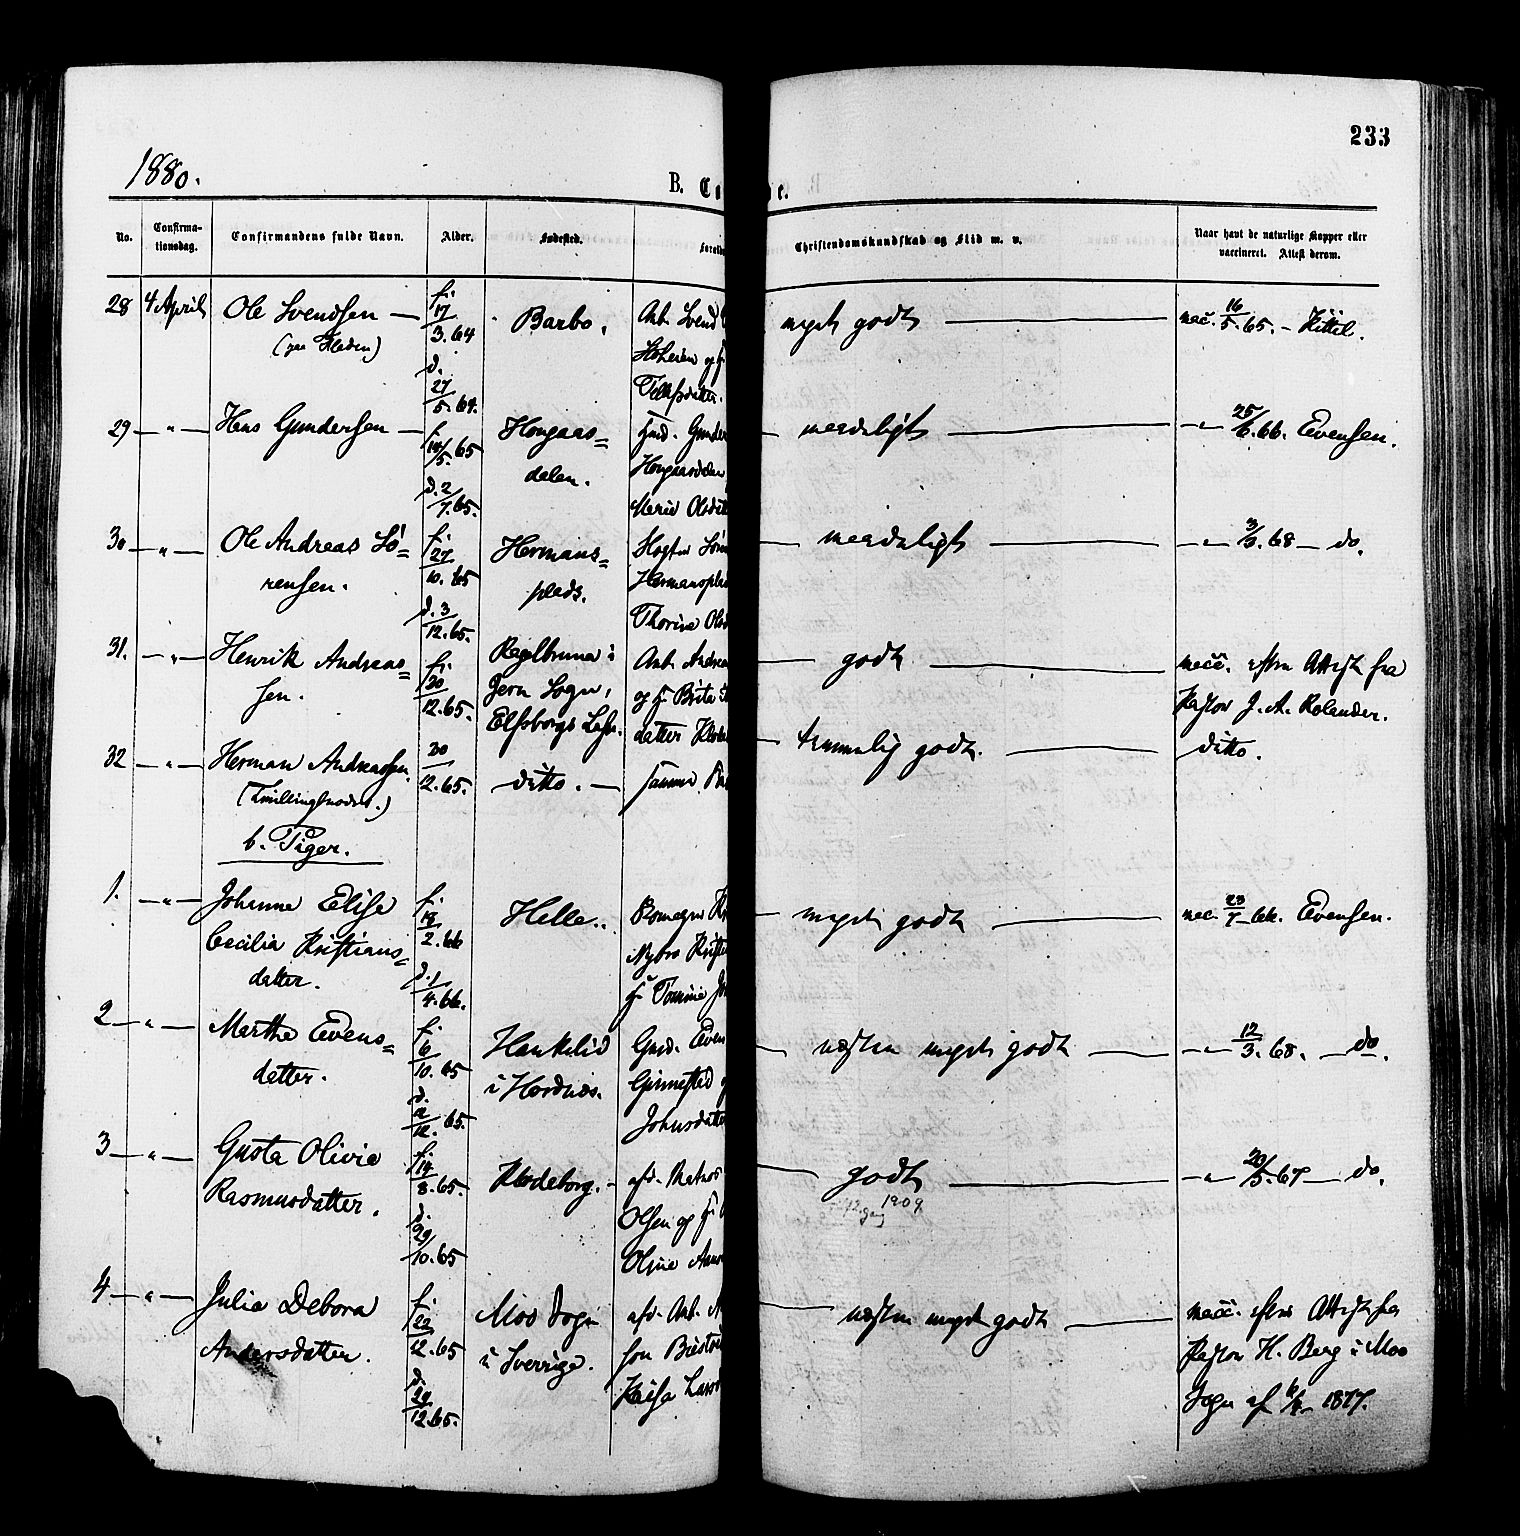 233
1880.
B. Co
e.
No.
Confirma-
tionsdag.
Confirmandens fulde Navn.
Alder.
Fødested.
Foreldr
Christendomskundskab og Flid m. v.
Naar havt de naturlige Kopper eller
vaccineret. Attest derom.
28 4 April Ole Svendsen — f. 17/3.64 d. 27/5.64. Barbo. Arb. Svend
meget godt — vacc. 16/5.65. – Kittil.
29 — " — Hans Gundersen — f. 14/5.65 d. 2/7.65. Hougaas=
dalen. Gund
Hougaasdalen
Marie Olsdat
maadeligt — — " — 25/6.66. Evensen.
30 — " — Ole Andreas Sö=
rensen. f. 27/10.65 d. 3/12.65. Hermans=
plads. Sön
Hermansplad
Thorine Ols
maadeligt — — " — 3/9.68 — do.
31. — " — Henrik Andreas=
sen. f. 20/12.65. i
Jern Sogn,
Elfsborgs Lehn. Arb. Andrea
og h. Brita
datter
godt — vacc. efter Attest fra
Pastor J. A. Rolander.
32 — " — Herman Andreassen.
(Tvillingbroder.) 20/12.65. ditto. — samme
temmelig godt. — ditto.
b. Piger.
1. — " — Johanne Elise
Cecilia Kristians=
datter. f. 18/2.66 d. 1/4.66. Helle.
Nybro Kriste
h. Tomine
meget godt — vacc. 23/7.66. Evensen.
2 — " — Marthe Evens=
datter. f. 6/10.65 d. /12.65. Hankelid
i Hordnæs. Gmd. Even
Ginnestad
Johnsdatte
næsten meget godt — — " — 12/3.68. — do.
3 — " — Gusta Olivia
Rasmusdatter. f. 14/8.65. d. 29/10.65 Klodeborg. – afd. Matros
Olsen og h.
Oline
godt — — " — 20/5.67 — do.
1909
4 — " — Julia Debora
Andersdatter. f. 22/12.65 d. 29/12.65. Mos Sogn
i Sverrige. afd. Arb. A
son
Kaisa Lars
næsten meget godt — vacc. efter Attest fra
Pastor H. Berg i Mos
Sogn af 1877.